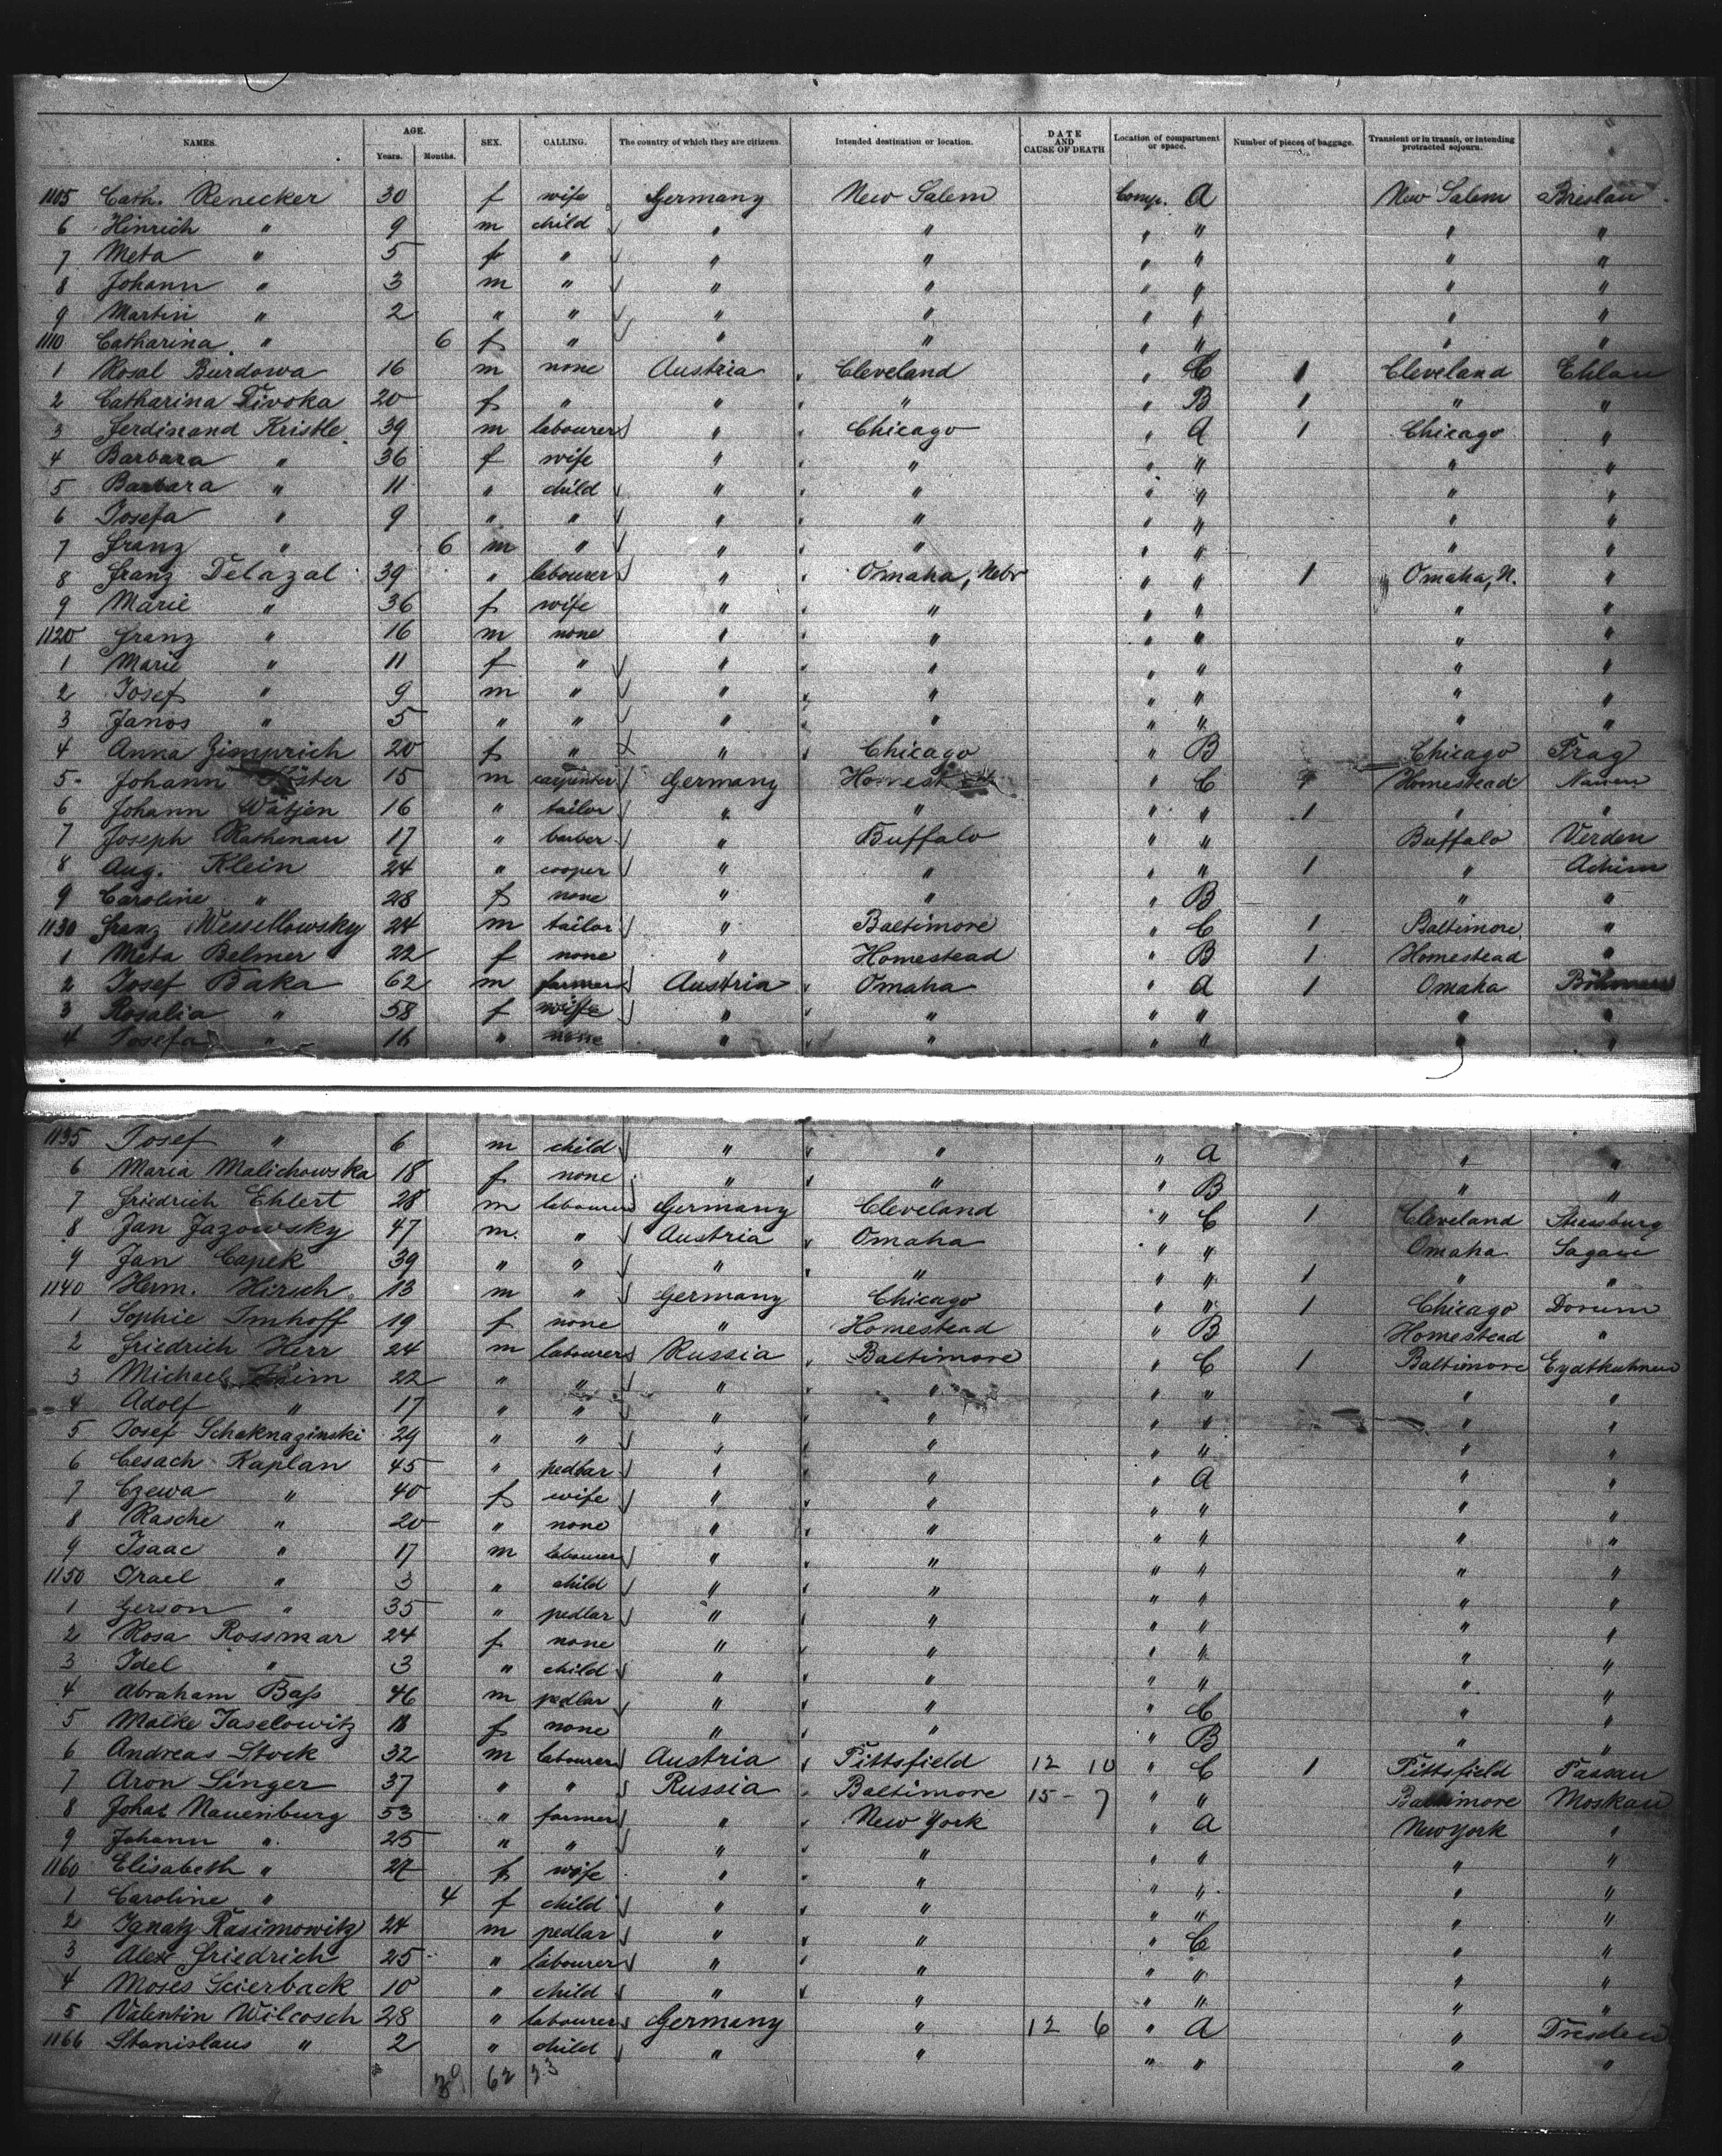 NAMES. AGE. Years. Months. SEX. CALLING. The country of which they are citizens. Intended destination or location. DATE AND CAUSE OF DEATH Location of compartment or space. Number of pieces of baggage. Transient or in transit, or intending protracted sojourn.
1105 Cath. Renecker 30 f wife Germany New Salem Comp. A New Salem Breslau
6 Hinrich " 9 m child " " " " " "
7 Meta " 5 f " " " " " " "
8 Johann " 3 m " " " " " " "
9 Martin " 2 " " " " " " " "
1110 Catharina " 6 f " " " " " " "
1 Rosal Burdowa 16 m none Austria Cleveland " C 1 Cleveland Ehlau
2 Catharina Tivoka 20 f " " " " B 1 " "
3 Ferdinand Kristle 39 m labourer " Chicago " A 1 Chicago "
4 Barbara " 36 f wife " " " " " "
5 Barbara " 11 " child " " " " " "
6 Josefa " 9 " " " " " " " "
7 Franz " 6 m " " " " " " "
8 Franz Telazal 39 " labourer " Omaha, Nebr " " 1 Omaha, N. "
9 Marie " 36 f wife " " " " " "
1120 Franz " 16 m none " " " " " "
1 Marie " 11 f " " " " " " "
2 Josef " 9 m " " " " " " "
3 Janos " 5 " " " " " " " "
4 Anna Zimprich 20 f " " Chicago " B Chicago Prag
5 Johann 15 m carpenter Germany " C Homestead
6 Johann Wätjen 16 " tailor " " " " 1 " "
7 Joseph Rathenau 17 " barber " Buffalo " " Buffalo Verden
8 Aug. Klein 24 " cooper " " " " 1 " Achim
9 Caroline " 28 f none " " " B "
1130 Franz Wessellowsky 24 m tailor " Baltimore " C 1 Baltimore "
1 Meta Belmer 22 f none " Homestead " B 1 Homestead "
2 Josef Baka 62 m farmer Austria Omaha " A 1 Omaha
3 Rosalia " 58 f wife " " " " " "
4 Josefa " 16 " none " " " " " "
1135 Josef " 6 m child " " " A " "
6 Maria Malichowska 18 f none " " " B " "
7 Friedrich Ehlert 28 m labourer Germany Cleveland " C 1 Cleveland Strassburg
8 Jan Jazowsky 47 m. " Austria Omaha " " Omaha Sagan
9 Jan Capek 39 " " " " " " 1 " "
1140 Herm. Hirsch 13 m " Germany Chicago " " 1 Chicago Dorum
1 Sophie Imhoff 19 f none " Homestead " B Homestead "
2 Friedrich Herr 24 m labourer Russia Baltimore " C 1 Baltimore Eydtkuhnen
3 Michael 22 " " " " " " " "
4 Adolf " 17 " " " " " " " "
5 Josef Schaknazinski 29 " " " " " " " "
6 Cesach Kaplan 45 " pedlar " " " A " "
7 Czewa " 40 f wife " " " " " "
8 Rasche " 20 " none " " " " " "
9 Isaac " 17 m labourer " " " " " "
1150 Irael " 3 " child " " " " " "
1 Gerson " 35 " pedlar " " " " " "
2 Rosa Rossmar 24 f none " " " " " "
3 Idel " 3 " child " " " " " "
4 Abraham Bass 46 m pedlar " " " C " "
5 Malke Taselowitz 18 f none " " " B " "
6 Andreas Stock 32 m labourer Austria Pittsfield 12 10 " C 1 Pittsfield Passau
7 Aron Singer 37 " " Russia Baltimore 15 - 7 " " Baltimore Moskau
8 Nauenburg 53 " farmer " New York " A New York "
9 Johann " 25 " " " " " " " "
1160 Elisabeth " 27 f wife " " " " " "
1 Caroline " 4 f child " " " " " "
2 Ignatz Kasimowitz 24 m pedlar " " " C " "
3 Alex Friedrich 25 " labourer " " " " " "
4 Moses Scierback 10 " child " " " " " "
5 Valentin Wilcosch 28 " labourer Germany " 12 6 " A " Dresden
1166 Stanislaus " 2 " child " " " " " "
39 62 33